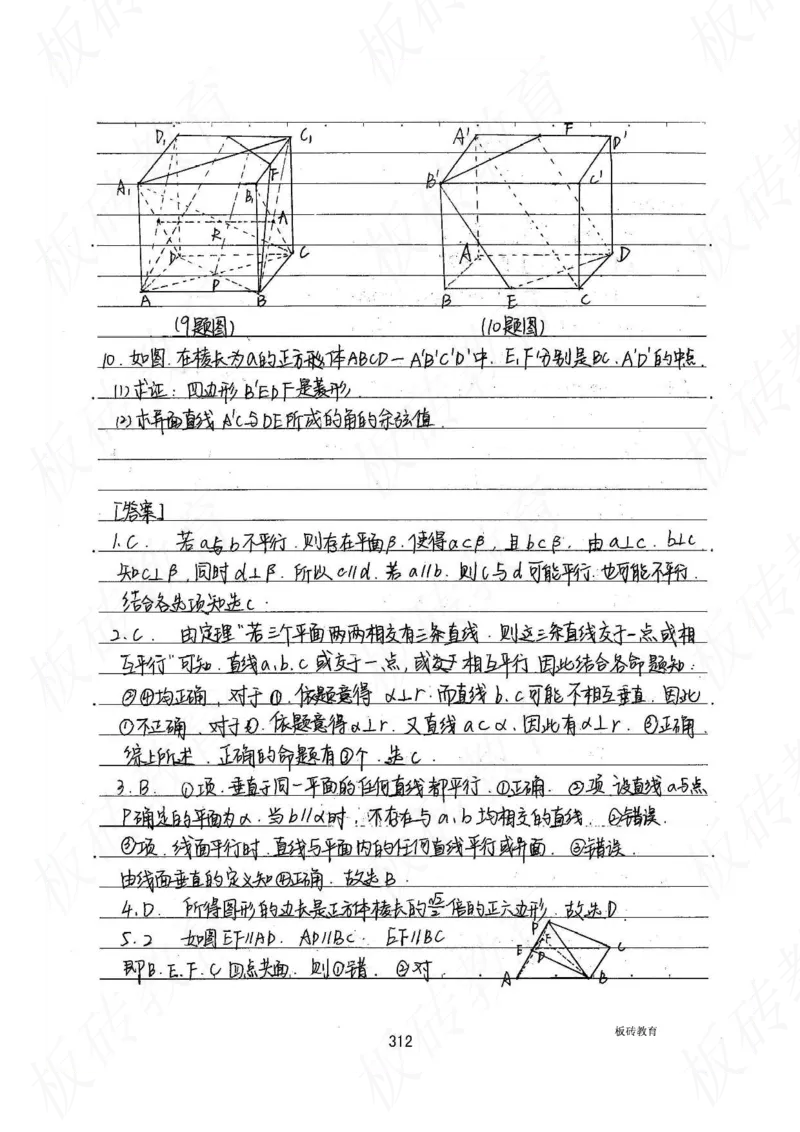 D₁ C₁ A₁ B₁ F A R D C P A B
A' F D' B' C' A D B E C
(9题图) (10题图)
10. 如图.在棱长为a的正方形体ABCD-A'B'C'D'中. E,F分别是BC.A'D'的中点.
(1)求证: 四边形B'EDF是菱形.
(2)求异面直线A'C与DE所成的角的余弦值.
[答案]
1. C. 若a与b不平行.则存在平面β.使得a⊂β, 且b⊂β. 由a⊥c. b⊥c.
知c⊥β,同时d⊥β. 所以c∥d. 若a∥b. 则c与d可能平行.也可能不平行.
结合各选项知选C.
2. C. 由定理"若三个平面两两相交有三条直线.则这三条直线交于一点或相
互平行"可知.直线a,b,c或交于一点,或相互平行.因此结合各命题知:
②④均正确, 对于①.依题意得 α⊥r.而直线b.c可能不相互垂直.因此
①不正确.对于③.依题意得α⊥r.又直线a⊂α.因此有α⊥r. ③正确.
综上所述.正确的命题有③个.选C.
3. B. ①项.垂直于同一平面的任何直线都平行.①正确. ②项 设直线a与点
P确定的平面为α.当b∥α时,不存在与a,b均相交的直线. ②错误.
③项.线面平行时.直线与平面内的任何直线平行或异面. ③错误.
由线面垂直的定义知④正确.故选B.
4. D. 所得图形的边长是正方体棱长的√2/2倍的正六边形.故选D.
5. 2 如图EF∥AD. AD∥BC. EF∥BC
即B.E.F.C四点共面. 则①错. ②对.
P E F D C A B
板砖教育
312
板砖教育